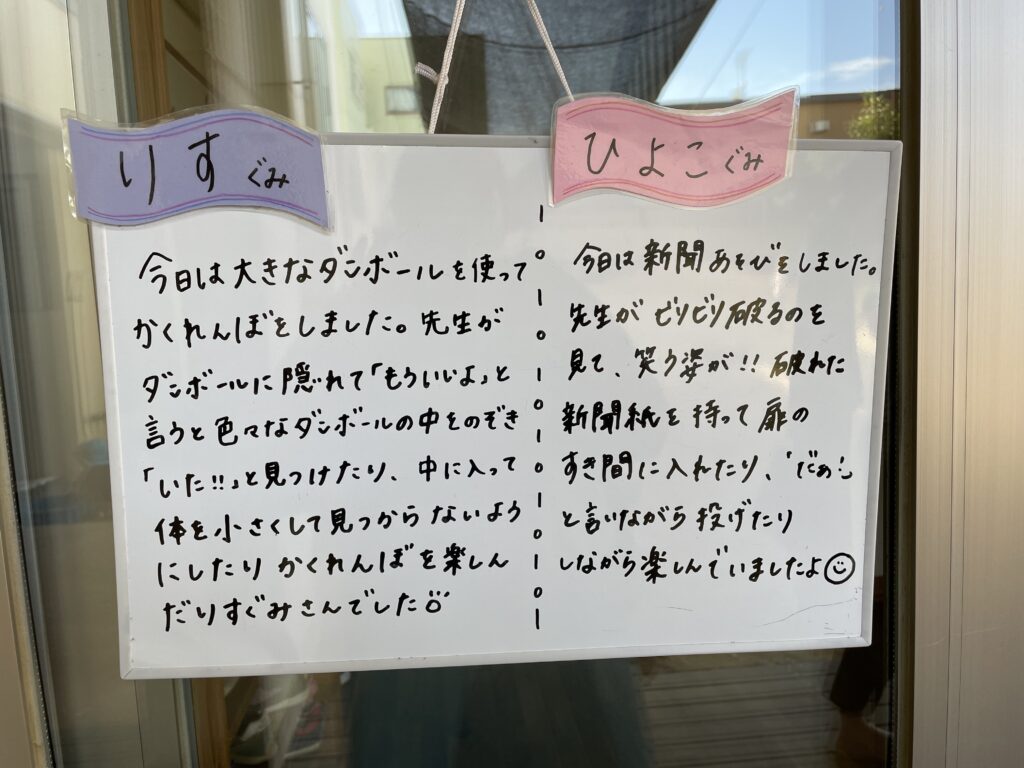 りすぐみ
今日は大きなダンボールを使って
かくれんぼをしました。先生が
ダンボールに隠れて「もういいよ」と
言うと色々なダンボールの中をのぞき
「いた!!」と見つけたり、中に入って
体を小さくして見つからないよう
にしたりかくれんぼを楽しん
だりすぐみさんでした
ひよこぐみ
今日は新聞あそびをしました。
先生がビリビリ破るのを
見て、笑う姿が!! 破れた
新聞紙を持って扉の
すき間に入れたり、「だぁ!」
と言いながら投げたり
しながら楽しんでいましたよ